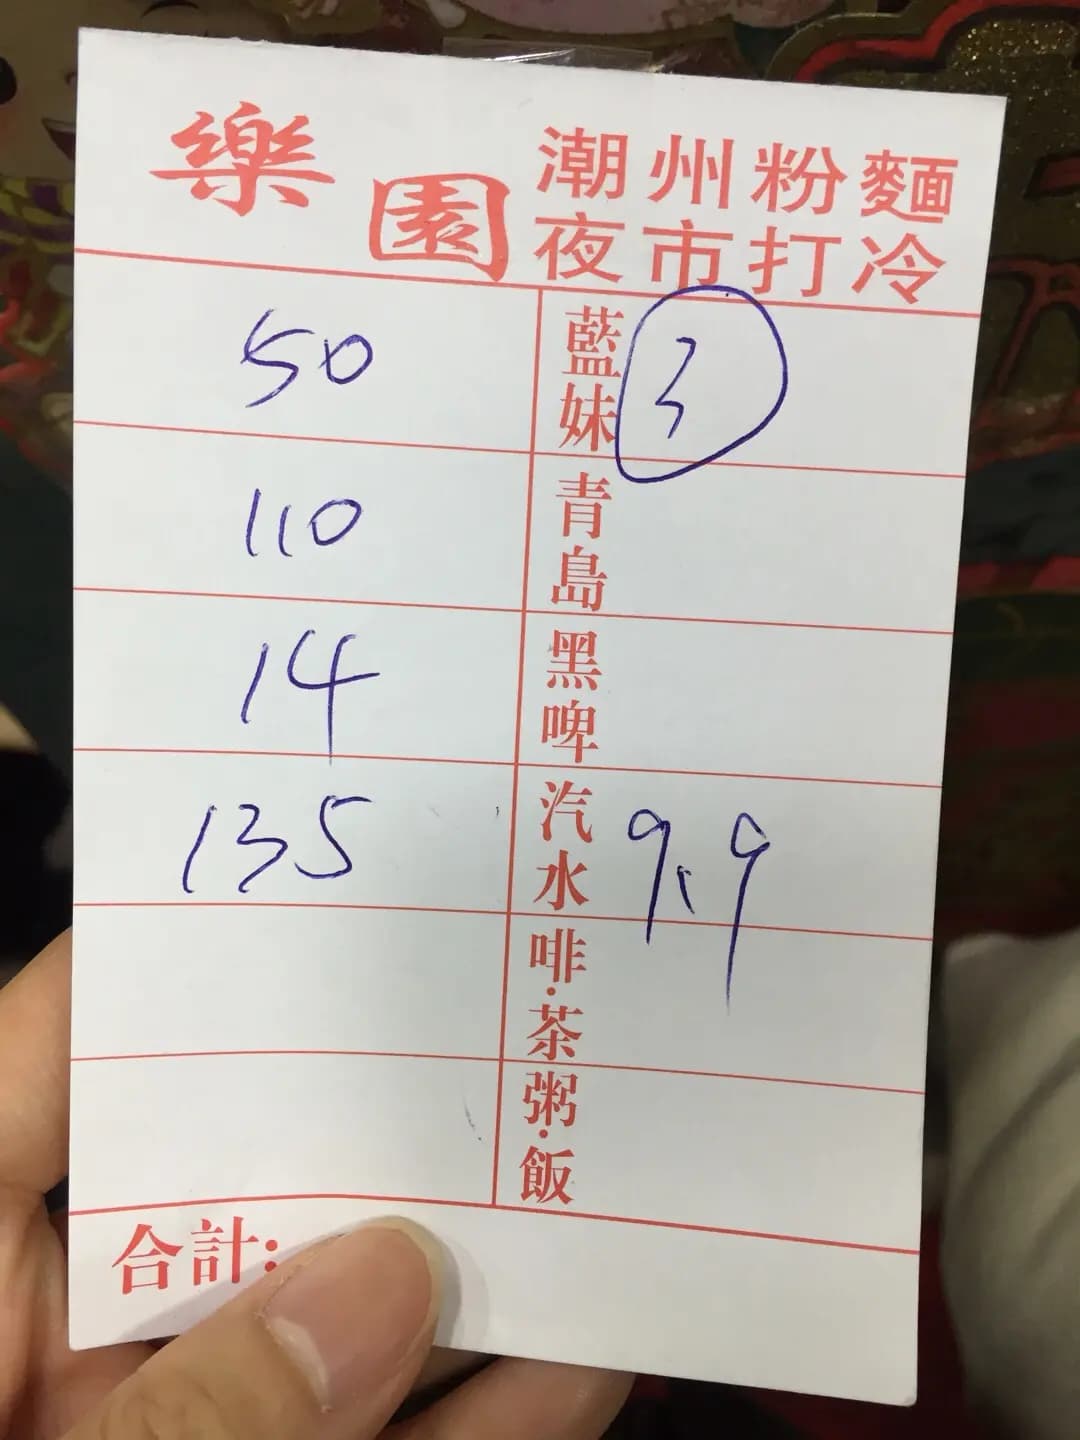 樂園
潮州粉麵
夜市打冷
50
藍妹 3
110
青島
14
黑啤
135
汽水 9,9
啡·茶
粥·飯
合計: